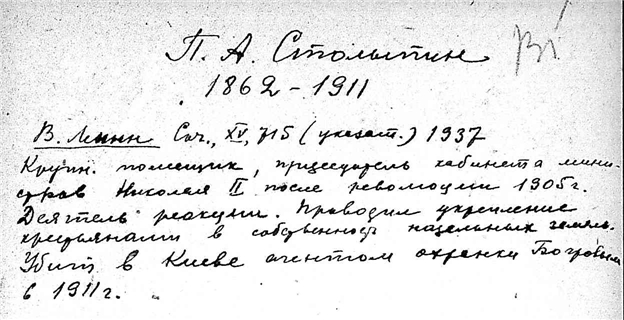 П. А. Столыпин
1862 – 1911
В. Ленин Соч., XV, 715 (указат.) 1937
Крупн. помещик, председатель кабинета мини-
стров Николая II после революции 1905 г.
Деятель реакции. Проводил укрепление
крестьянами в собственность надельных земель.
Убит в Киеве агентом охранки Богровым
в 1911 г.